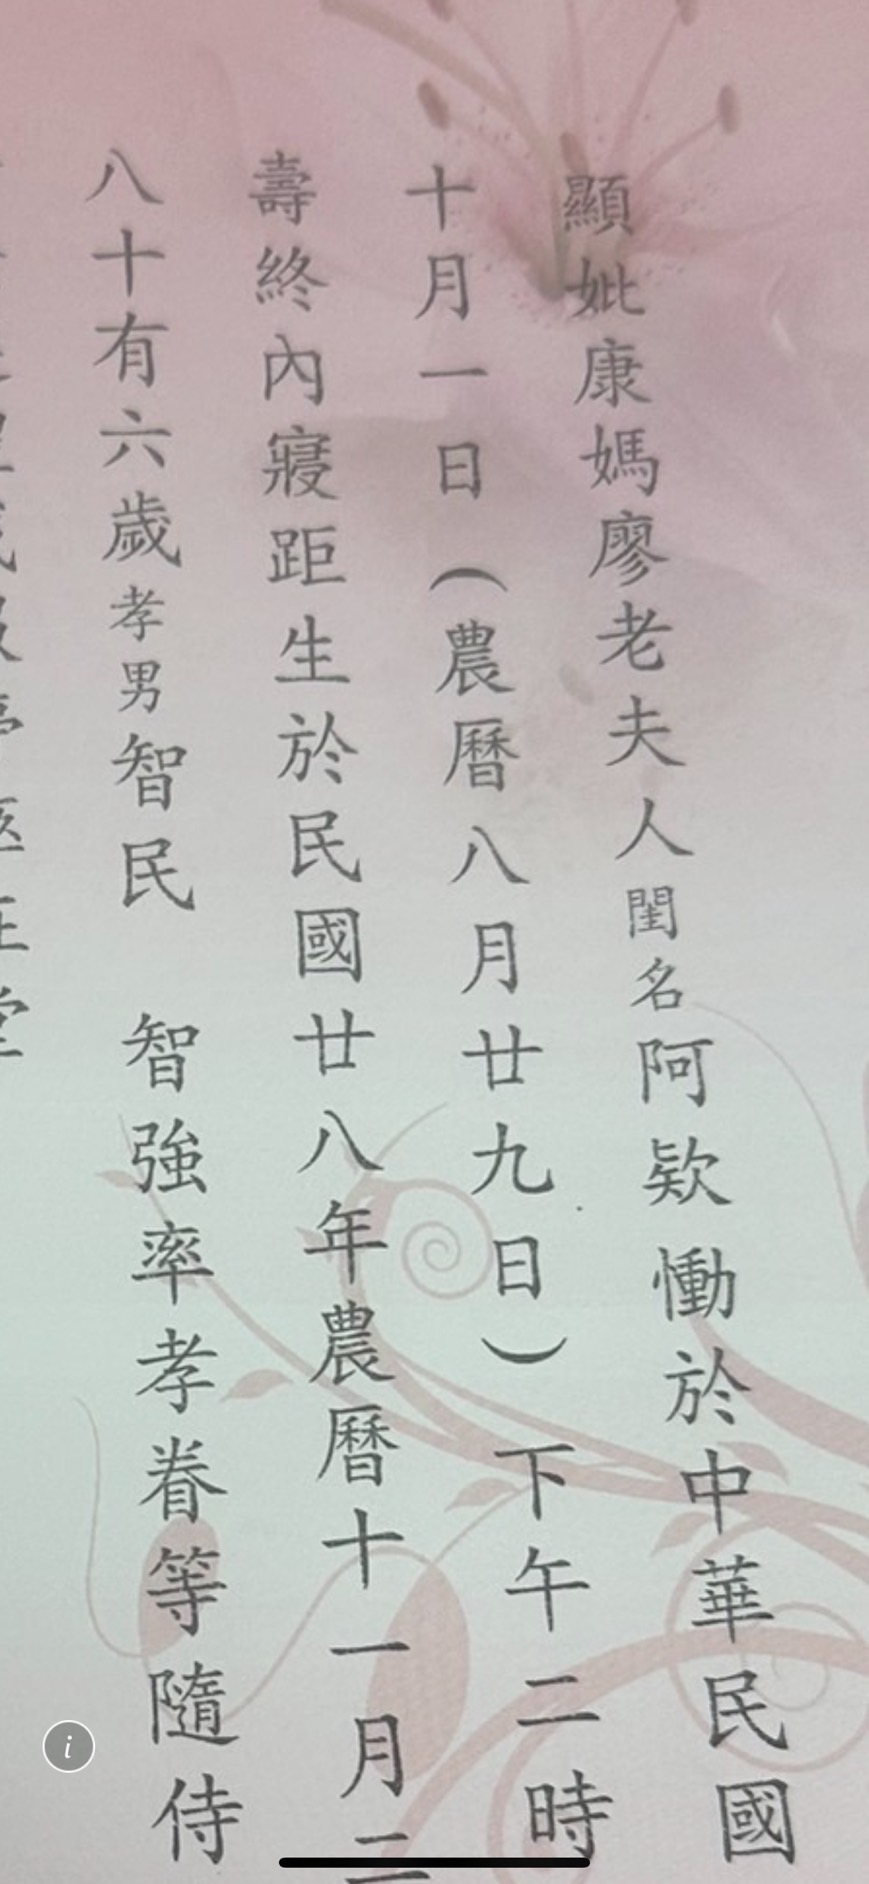 顯妣康媽廖老夫人閨名阿欵慟於中華民國
十月一日(農曆八月廿九日)下午二時
壽終內寢距生於民國廿八年農曆十一月二
八十有六歲孝男智民 智強率孝眷等隨侍